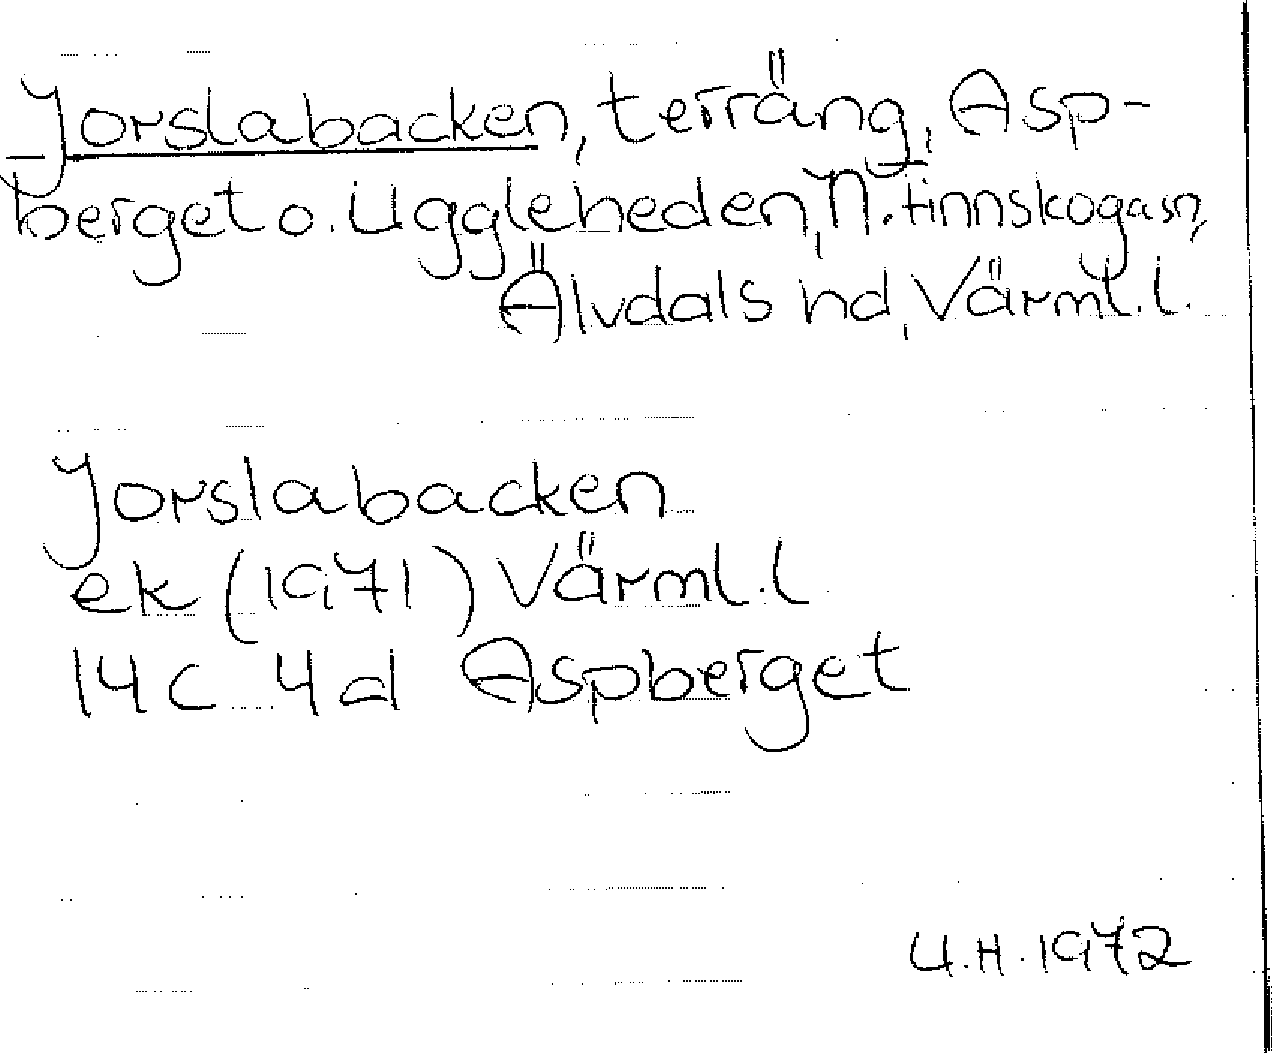 Jorslabacken, terräng, Asp-
berget o. Uggleheden, N. finnskoga sn,
Älvdals hd, Värml. l.
Jorslabacken
ek (1971) Värml. l
14 C 4 d Aspberget
U.H. 1972